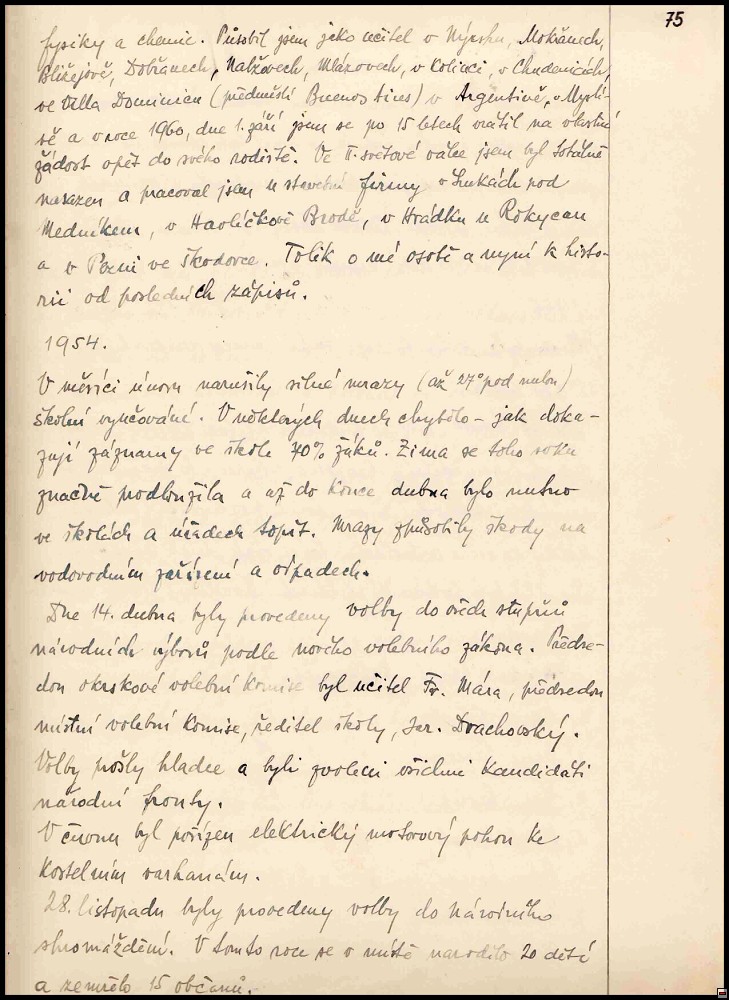 75
fysiky a chemie. Působil jsem jako učitel v Nýrsku, Mokřanech,
Blížejově, Dobřanech, Nalžovech, Mlázovech, v Kolinci, v Chudenicích,
ve Villa Dominico (předměstí Buenos Aires) v Argentině, v Mysli-
vě a v roce 1960, dne 1. září jsem se po 15 letech vrátil na vlastní
žádost opět do svého rodiště. Ve II. světové válce jsem byl totálně
nasazen a pracoval jsem u stavební firmy v Lukách pod
Medníkem, v Havlíčkově Brodě, v Hrádku u Rokycan
a v Plzni ve Škodovce. Tolik o mé osobě a nyní k histo-
rii od posledních zápisů.
1954.
V měsíci únoru narušily silné mrazy (až 27° pod nulou)
školní vyučování. V některých dnech chybělo - jak doka-
zují záznamy ve škole 70% žáků. Zima se toho roku
značně prodloužila a až do konce dubna bylo nutno
ve školách a úřadech topit. Mrazy způsobily škody na
vodovodním zařízení a odpadech.
Dne 14. dubna byly provedeny volby do všech stupňů
národních výborů podle nového volebního zákona. Předse-
dou okrskové volební komise byl učitel Fr. Mára, předsedou
místní volební komise, ředitel školy, Jar. Drachovský.
Volby prošly hladce a byli zvoleni všichni kandidáti
národní fronty.
V červnu byl pořízen elektrický motorový pohon ke
kostelním varhanám.
28. listopadu byly provedeny volby do Národního
shromáždění. V tomto roce se v místě narodilo 20 dětí
a zemřelo 15 občanů.